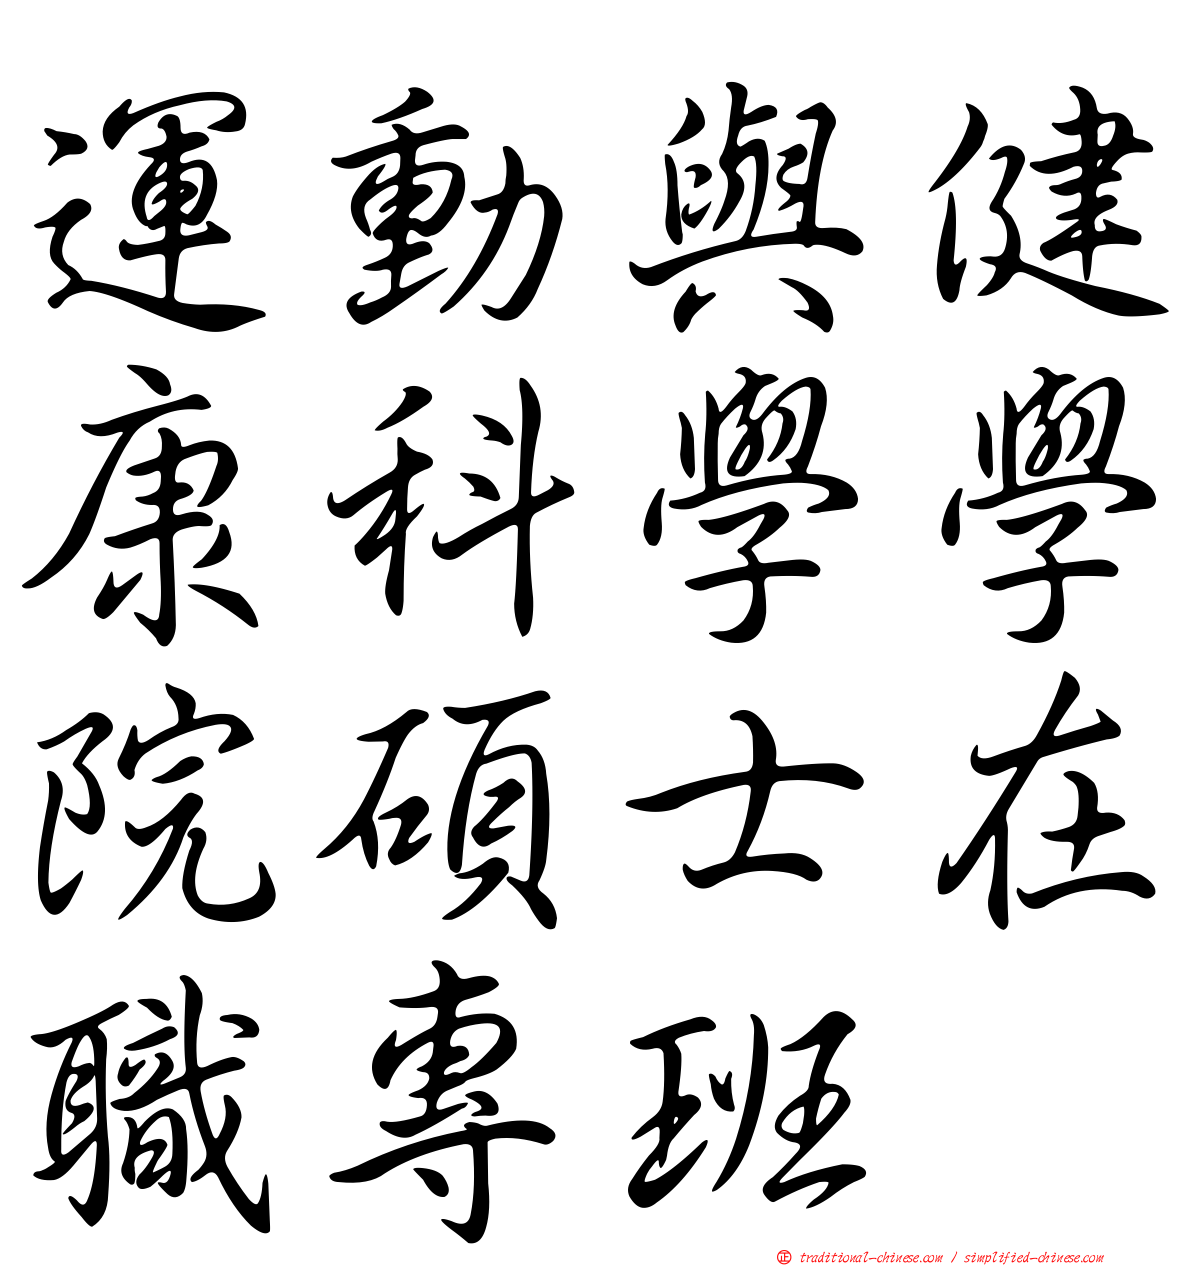 運動與健
康科學學
院碩士在
職專班
㊣ traditional-chinese.com / simplified-chinese.com